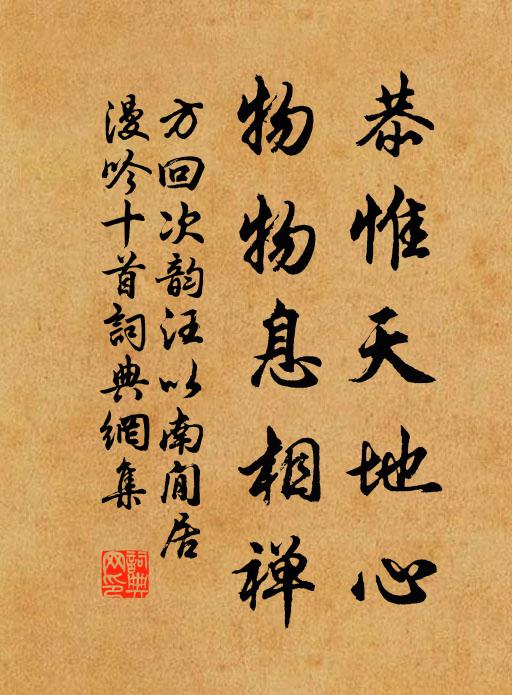 恭惟天地心
物物息相禅
方回次韵汪以南闲居
漫吟十首詞典網集
詞典网印